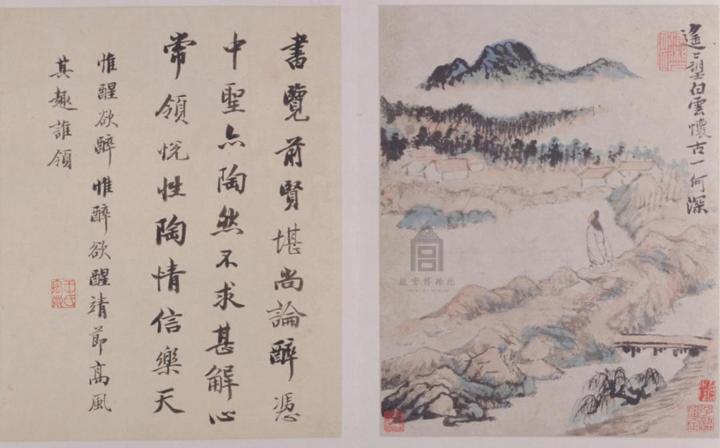 遙〻望白雲懷古一何深
書覽前賢堪尚論醉憑
中聖亦陶然不求甚解心
常領悅性陶情信樂天
惟醒欲醉惟醉欲醒靖節高風
其趣誰領
故宮博物院